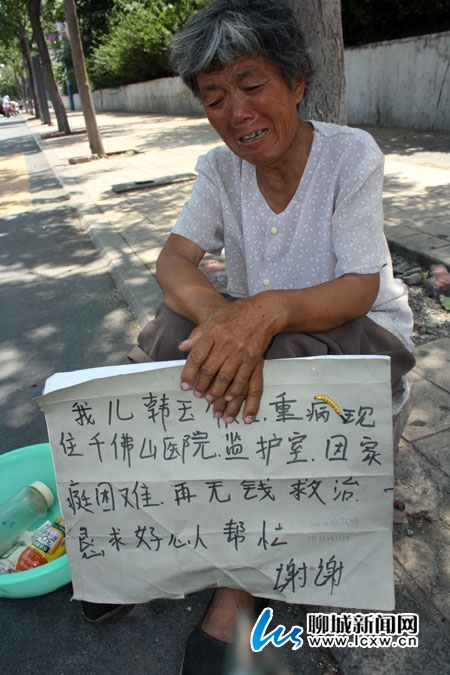 我儿韩玉 重病现
住千佛山医院.监护室.因家
庭困难.再无钱救治.
恳求好心人帮忙
谢谢
聊城新闻网
www.lcxw.cn